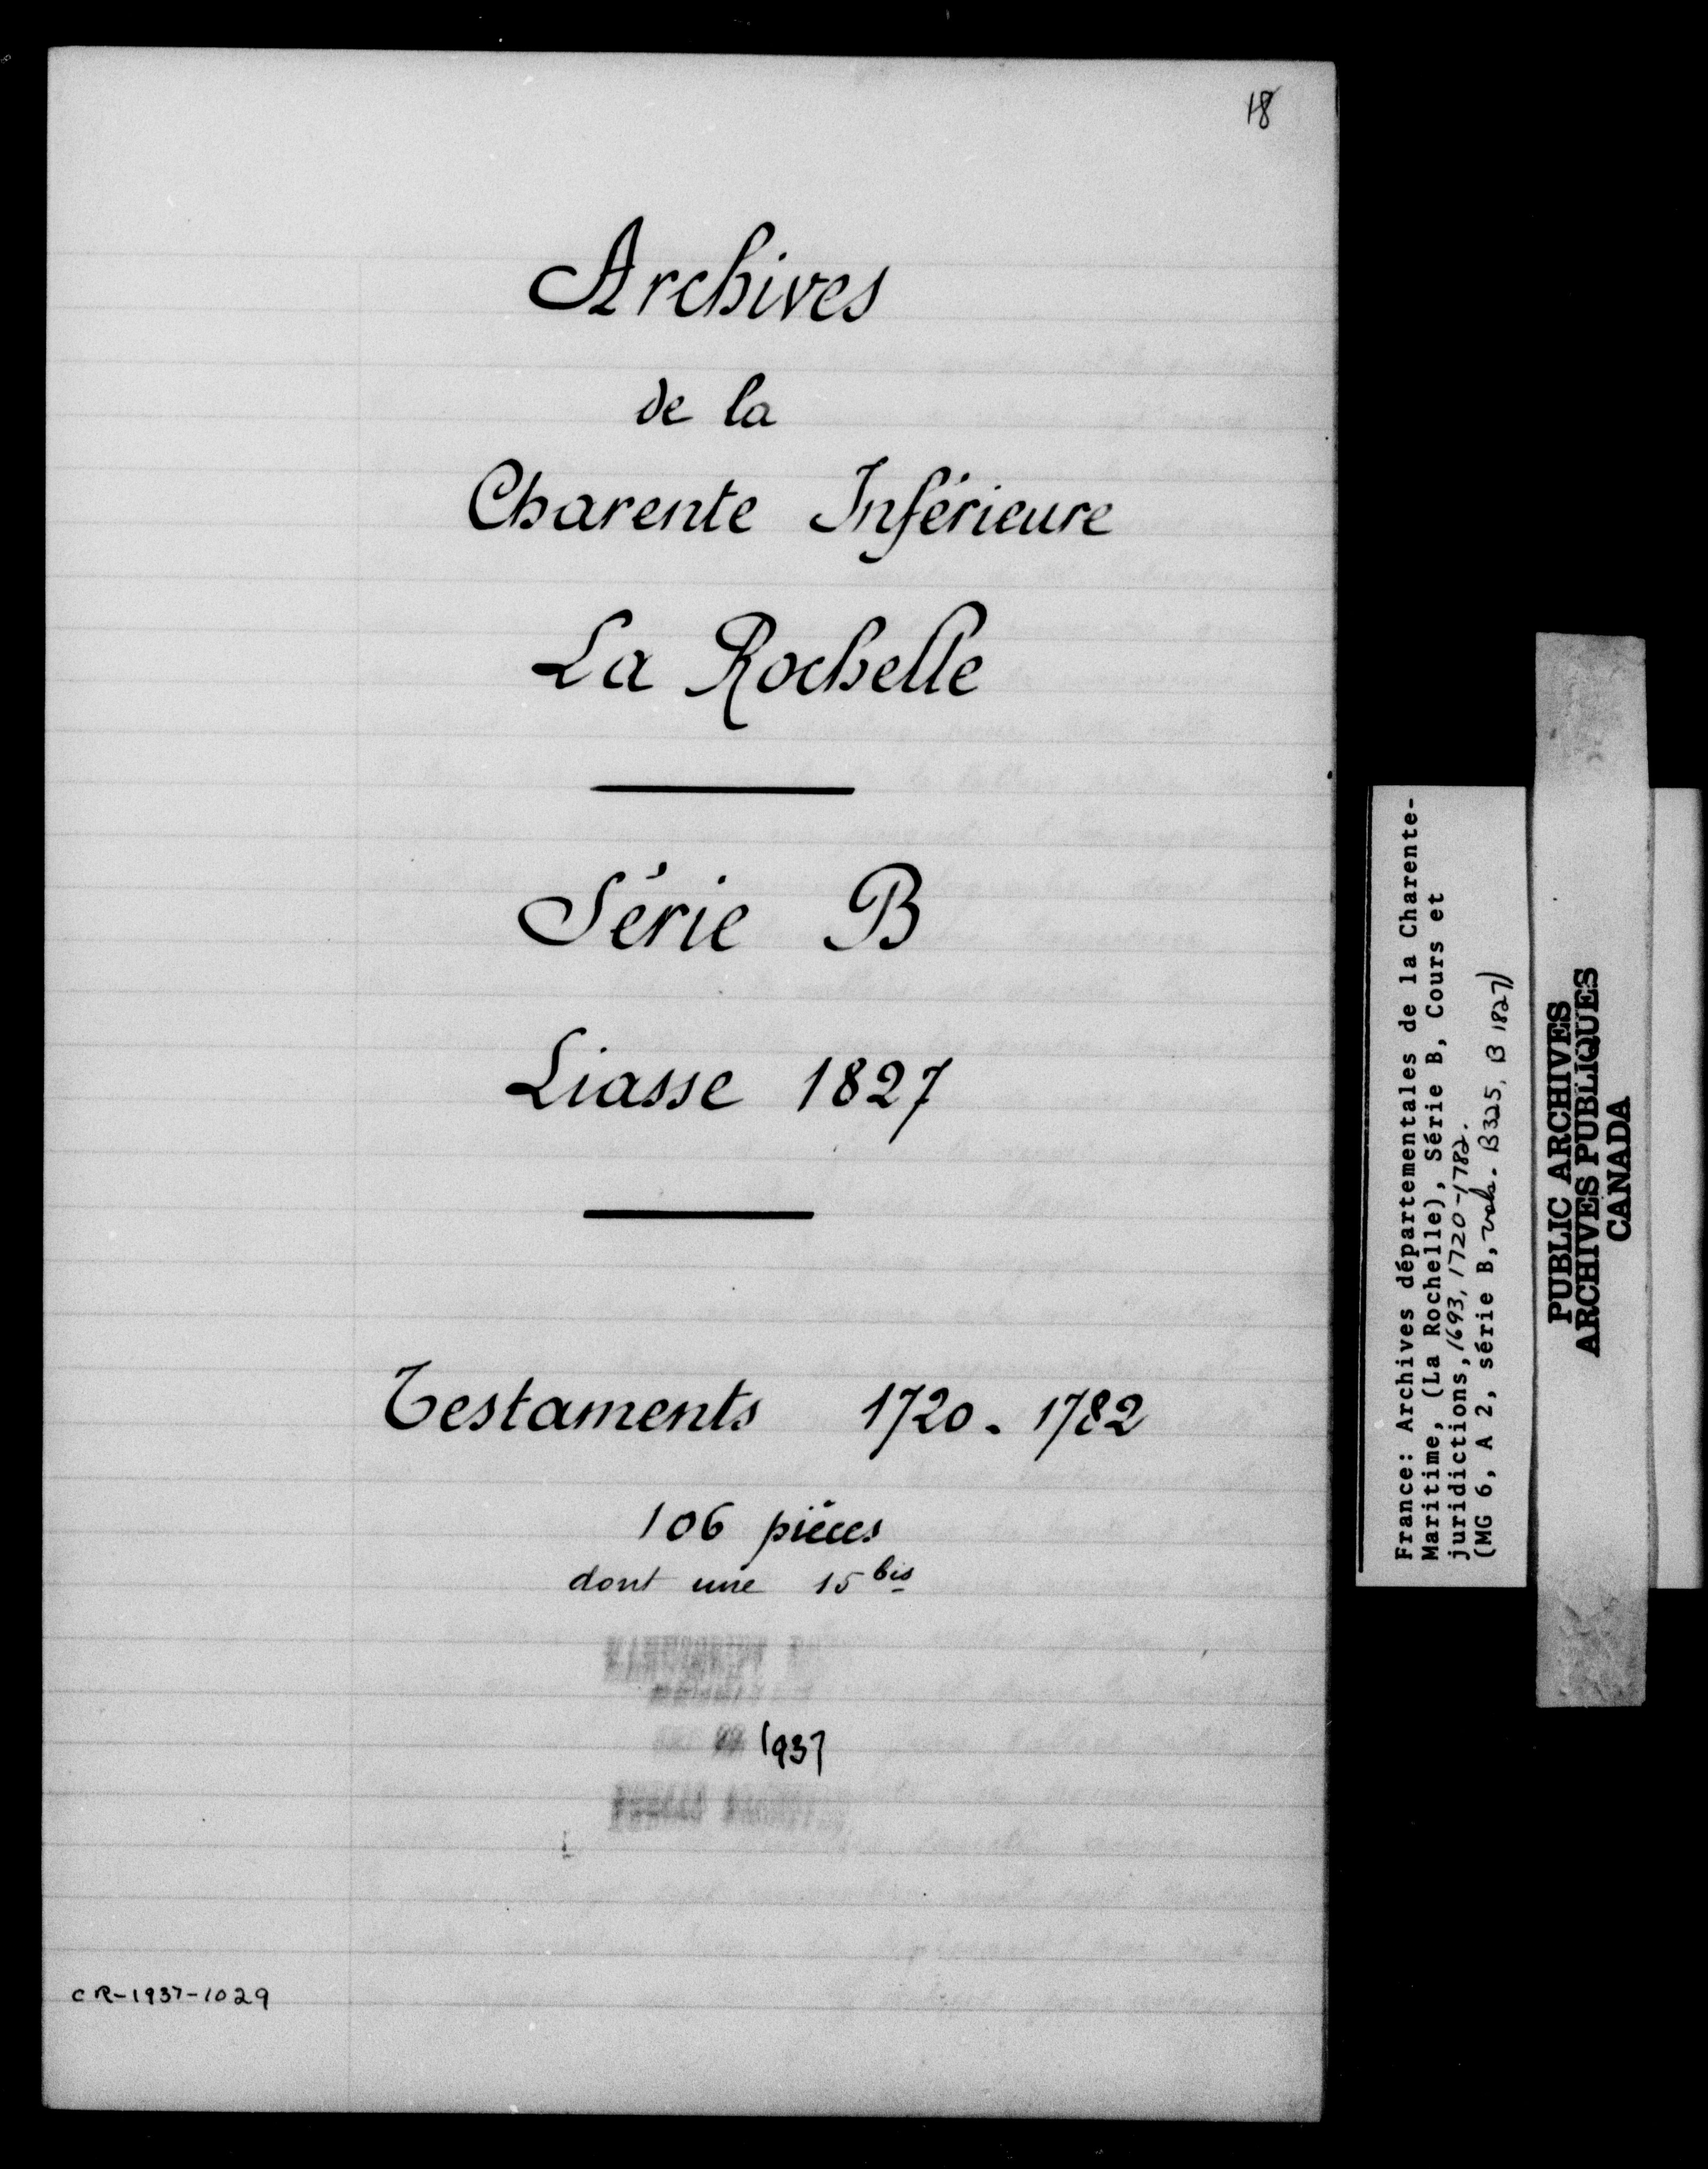 18
Archives
de la
Charente Inférieure
La Rochelle
Série B
Liasse 1827
Testaments 1720-1782
106 pièces
dont une 15 bis
1937
CR-1937-1029
France: Archives départementales de la Charente-
Maritime, (La Rochelle), Série B, Cours et
juridictions, 1693, 1720-1782.
(MG 6, A 2, série B, vols. B325, B 1827)
PUBLIC ARCHIVES
ARCHIVES PUBLIQUES
CANADA